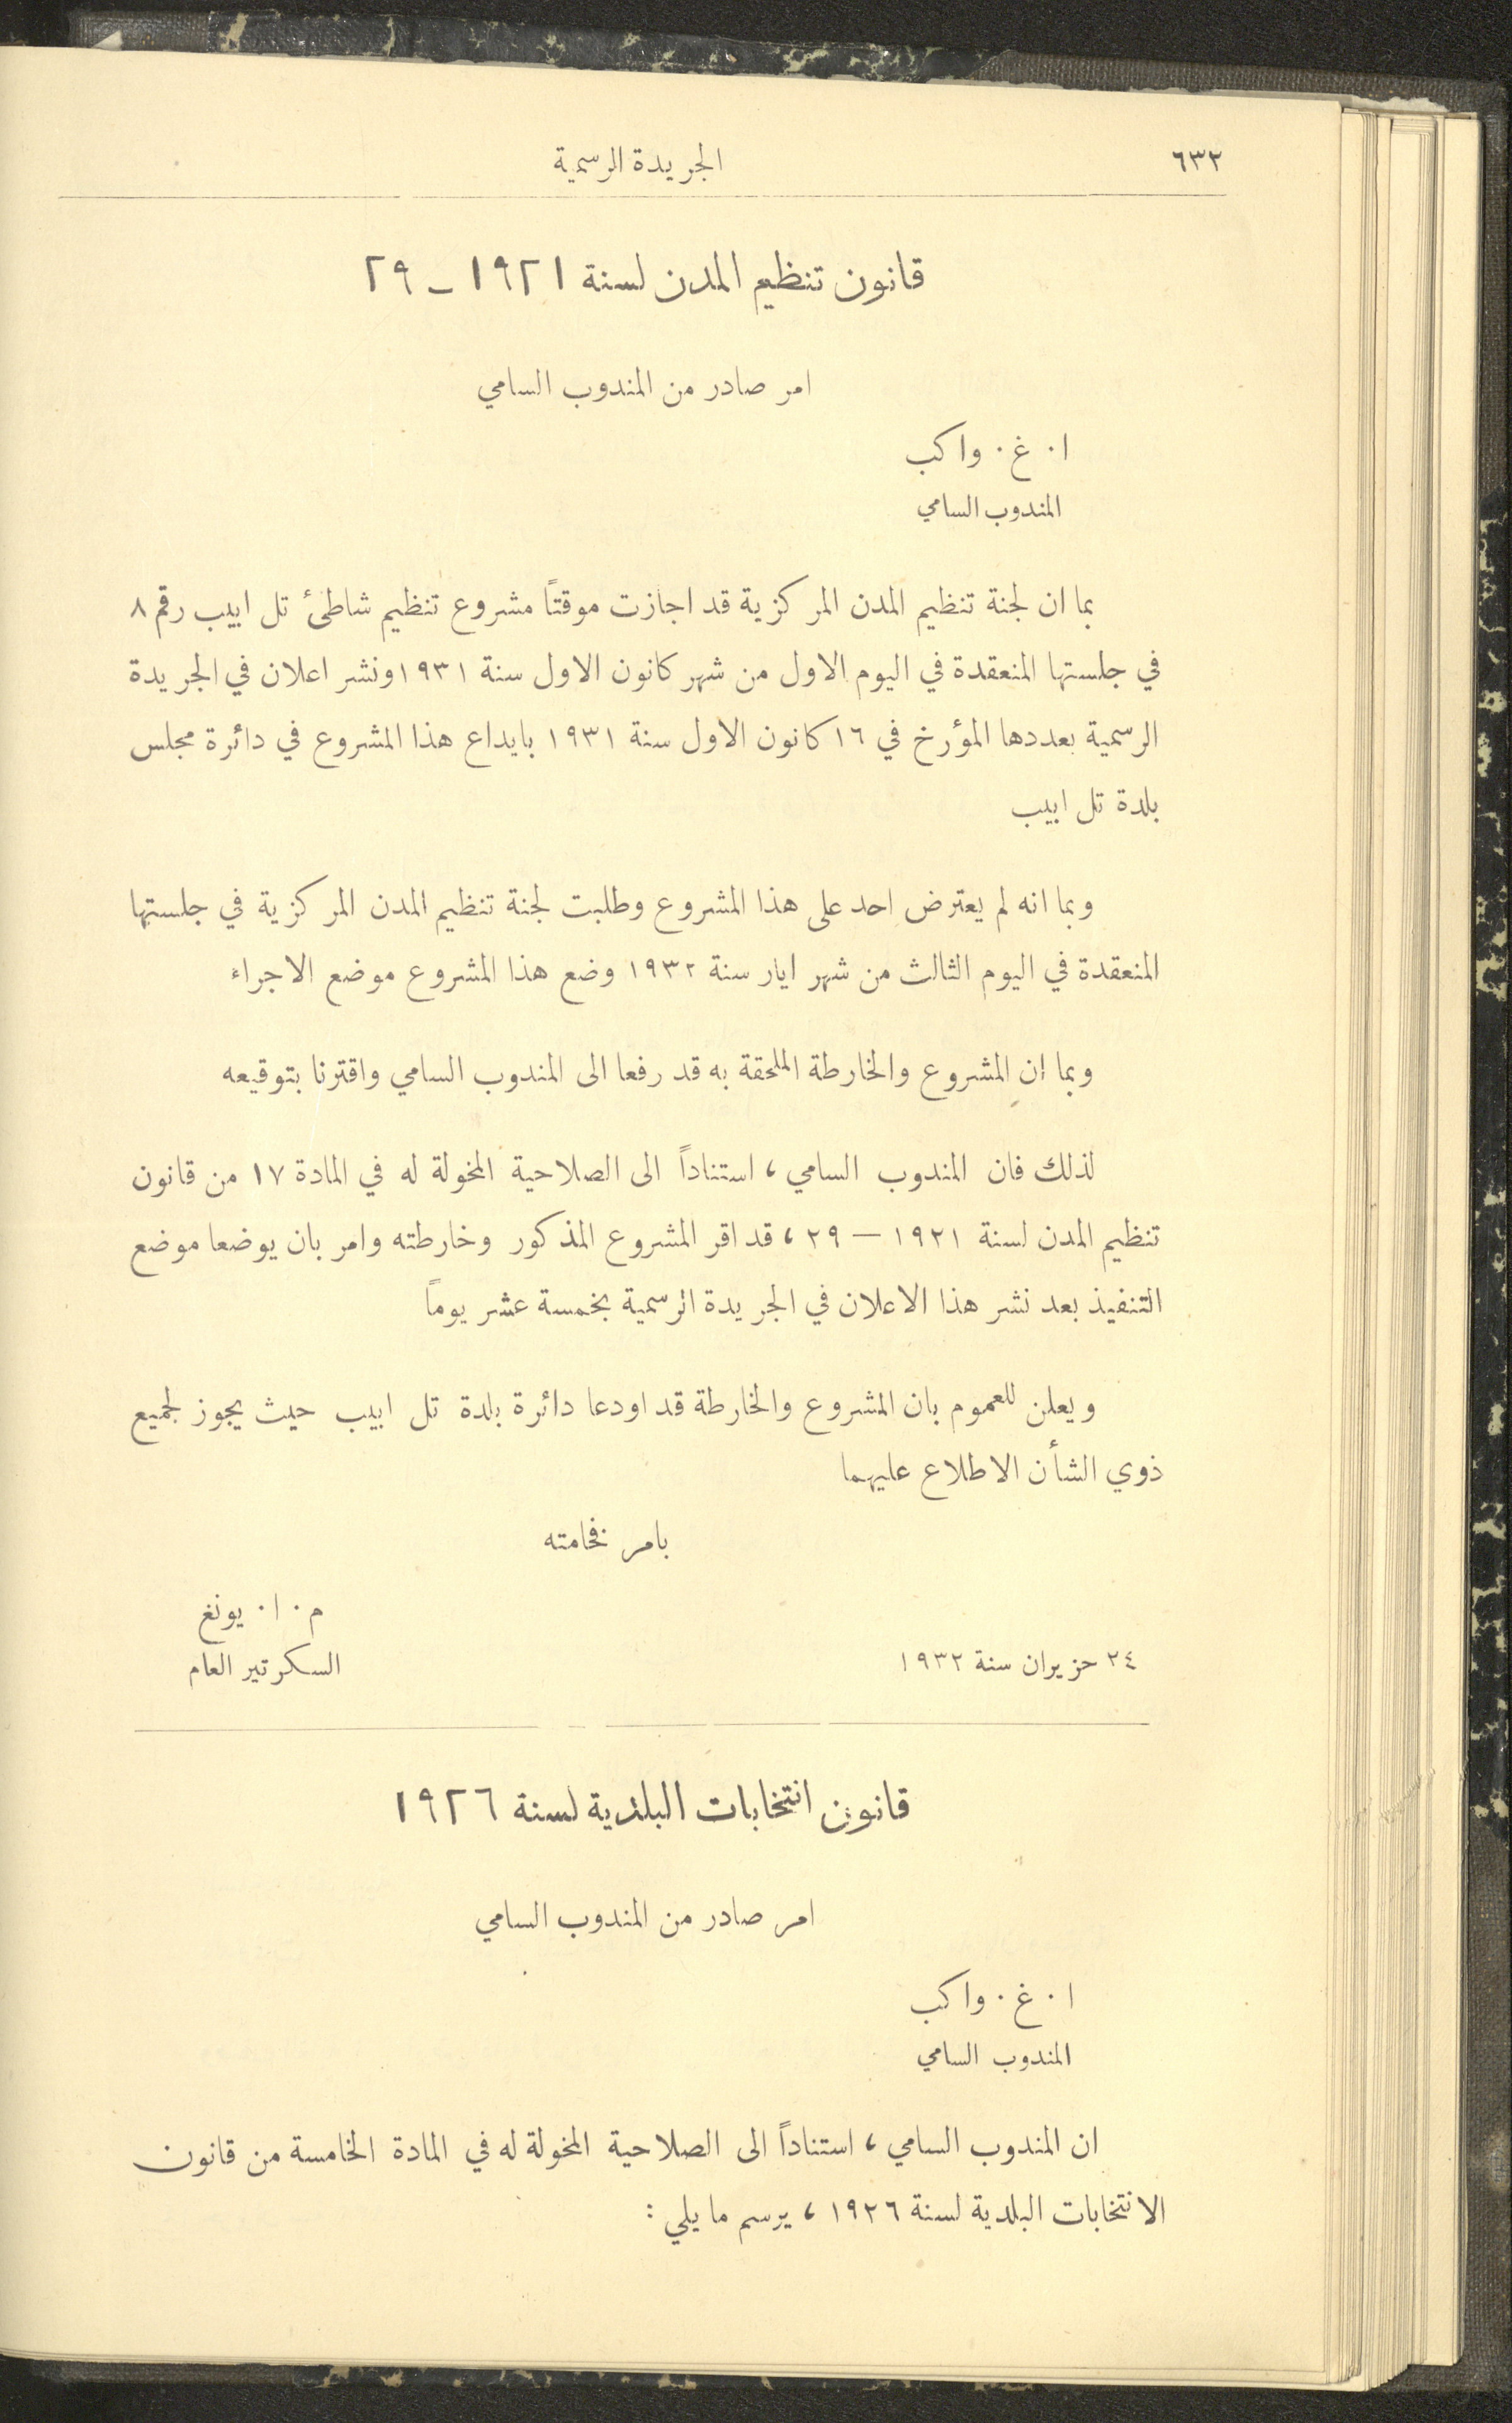 ٦٣٢
الجريدة الرسمية
قانون تنظيم المدن لسنة ١٩٢١ - ٢٩
امر صادر من المندوب السامي
ا. غ. واكب
المندوب السامي
بما ان لجنة تنظيم المدن المركزية قد اجازت موقتاً مشروع تنظيم شاطئ تل ابيب رقم ٨
في جلستها المنعقدة في اليوم الاول من شهر كانون الاول سنة ١٩٣١ ونشر اعلان في الجريدة
الرسمية بعددها المؤرخ في ١٦ كانون الاول سنة ١٩٣١ بايداع هذا المشروع في دائرة مجلس
بلدة تل ابيب
وبما انه لم يعترض احد على هذا المشروع وطلبت لجنة تنظيم المدن المركزية في جلستها
المنعقدة في اليوم الثالث من شهر ايار سنة ١٩٣٢ وضع هذا المشروع موضع الاجراء
وبما ان المشروع والخارطة الملحقة به قد رفعا الى المندوب السامي واقترنا بتوقيعه
لذلك فان المندوب السامي، استناداً الى الصلاحية المخولة له في المادة ١٧ من قانون
تنظيم المدن لسنة ١٩٢١ — ٢٩، قد اقر المشروع المذكور وخارطته وامر بان يوضعا موضع
التنفيذ بعد نشر هذا الاعلان في الجريدة الرسمية بخمسة عشر يوماً
ويعلن للعموم بان المشروع والخارطة قد اودعا دائرة بلدة تل ابيب حيث يجوز لجميع
ذوي الشأن الاطلاع عليهما
بامر فخامته
م. ا. يونغ
٢٤ حزيران سنة ١٩٣٢
السكرتير العام
قانون انتخابات البلدية لسنة ١٩٢٦
امر صادر من المندوب السامي
ا. غ. واكب
المندوب السامي
ان المندوب السامي، استناداً الى الصلاحية المخولة له في المادة الخامسة من قانون
الانتخابات البلدية لسنة ١٩٢٦، يرسم ما يلي :